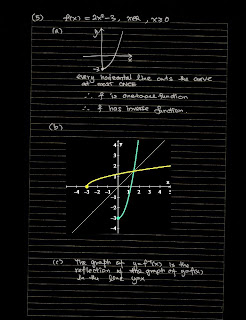 (5) f(x) = 2x²-3, x∈R, x≥0
(a)
y
x
-3
Every horizontal line cuts the curve
at most ONCE
∴ f is one to one function
∴ f has inverse function.
(b)
4 Y
3
2
1
-4 -3 -2 -1 1 2 3 4
-1
-2
-3
-4
(c) The graph of y=f⁻¹(x) is the
reflection of the graph of y=f(x)
in the line y=x